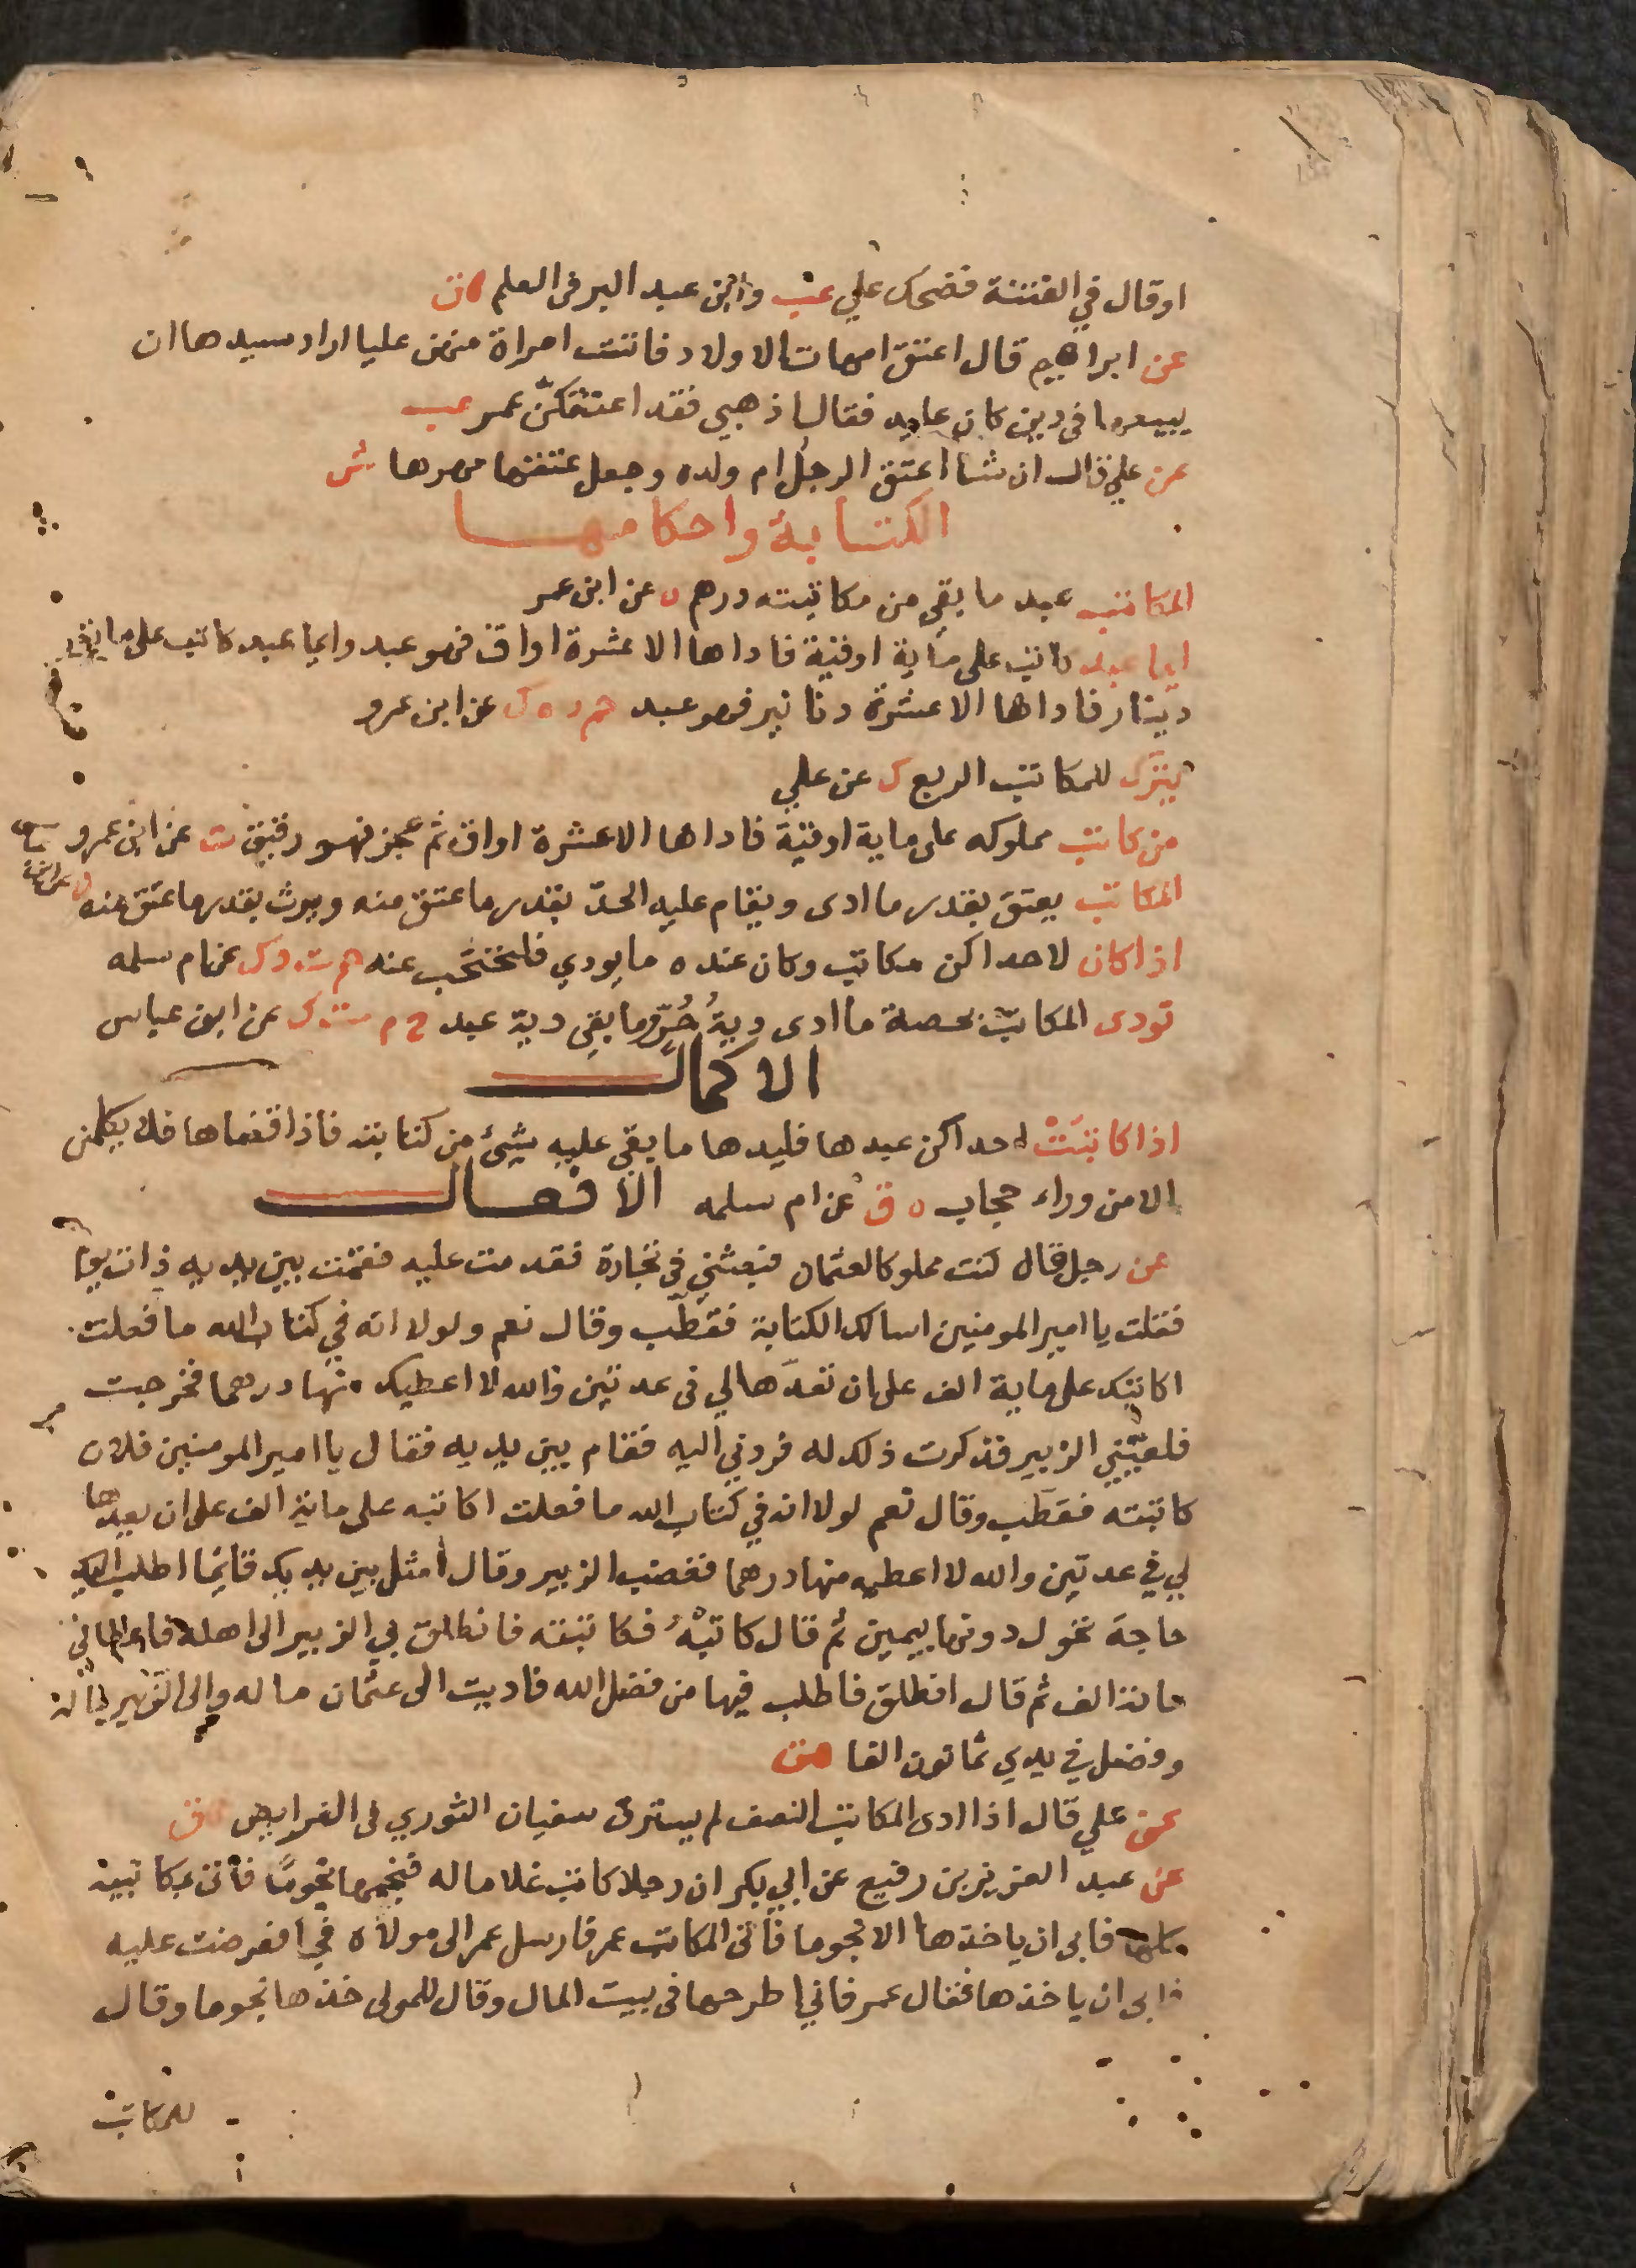 او قال في الفتنة فضحك علي عب وابن عبد البر في العلم ق
عن ابراهيم قال اعتق امهات الاولاد فاتت امراة منهن عليا اراد سيدها ان
يبيعها في دين كان عليه فقال اذهبي فقد اعتقكنّ عمر عب
عن علي قال ان شا اعتق الرجل ام ولده وجعل عتقها مهرها ش
الكتابة واحكامها
المكاتب عبد ما بقي من مكاتبته درهم د عن ابن عمر
ايما عبد كاتب على ماية اوقية فاداها الا عشرة اواق فهو عبد وايما عبد كاتب على ماية
دينار فاداها الا عشرة دنانير فهو عبد حم د ه ك عن ابن عمرو
يترك للمكاتب الربع ك عن علي
من كاتب مملوكه على ماية اوقية فاداها الا عشرة اواق ثم عجز فهو رقيق ت عن ابن عمرو
المكاتب يعتق بقدر ما ادى ويقام عليه الحدّ بقدر ما عتق منه ويورث بقدر ما عتق منه
اذا كان لاحداكن مكاتب وكان عنده ما يودي فلتحتجب عنه حم ت د ك عن ام سلمه
تودى المكاتب بحصة ما ادى ديةُ حُرٍّ وما بقي دية عبد حم ت ك عن ابن عباس
الاكمال
اذا كاتبَتْ احداكن عبدها فليدها ما بقي عليه شيئ من كتابته فاذا قضاها فلا يكلمن
الا من وراء حجاب ه ق عن ام سلمه الافعال
عن رجل قال كنت مملوكا لعثمان فبعثني في تجارة فقدمت عليه فقمت بين يديه ذات يوم
فقلت يا امير المومنين اسالك الكتابة فقطّب وقال نعم ولولا انه في كتاب الله ما فعلت
اكاتبك على ماية الف على ان تعدّها لي في عدتين والله لا اعطيك منها درهما فخرجت
فلقيّني الزبير فذكرت ذلك له فردني اليه فقام بين يديه فقال يا امير المومنين فلان
كاتبته فقطّب وقال نعم لولا انه في كتاب الله ما فعلت اكاتبه على ماية الف على ان يعدها
لي في عدتين والله لا اعطيه منها درهما فغضب الزبير وقال أمثل بين يديك قائما اطلب اليك
حاجة تحول دونها بيمين ثم قال كاتبْهُ فكاتبته فانطلق بي الزبير الى اهله فاعطاني
مائة الف ثم قال انطلق فاطلب فيها من فضل الله فاديت الى عثمان ماله والى الزبير ماله
وفضل في يدي ثمانون الفا ق
عن علي قال اذا ادى المكاتب النصف لم يسترق سفيان الثوري في الفرايض ق
عن عبد العزيز بن رفيع عن ابي بكر ان رجلا كاتب غلاما له فنجمها نجومًا فأتى بمكاتبته
كلها فابى ان ياخذها الا نجوما فأتى المكاتب عمر فارسل عمر الى مولاه فجا فعرضت عليه
فابى ان ياخذها فقال عمر فاني اطرحها في بيت المال وقال للمولى خذها نجوما وقال
للمكاتب